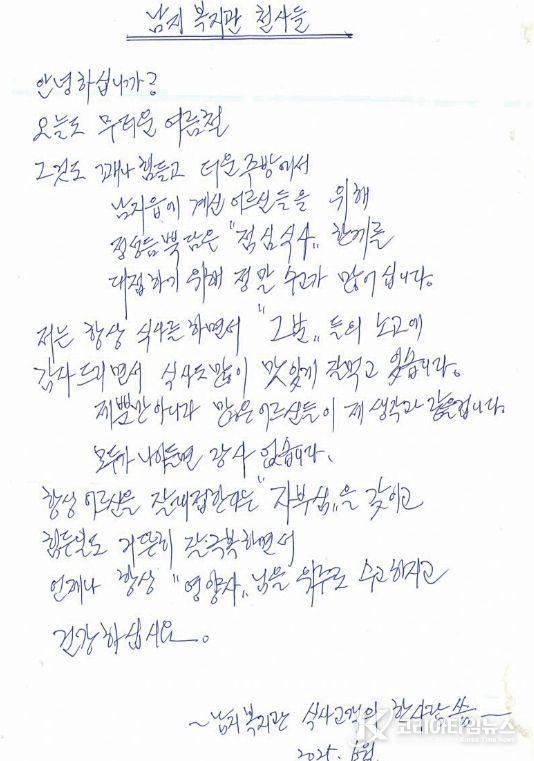 남지 복지관 천사들
안녕하십니까?
오늘도 무더운 여름철
그것도 꽤나 힘들고 더운 주방에서
남지읍에 계신 어르신들을 위해
정성듬뿍 담은 "점심식사" 한께를
대접하기 위해 정말 수고가 많이 십니다.
저는 항상 식사를 하면서 "그분" 들의 노고에
감사 드리면서 식사도 많이 맛있게 잘먹고 있습니다.
제뿐만아니라 많은 어르신들이 제 생각과 같을겁니다.
모두가 나이들면 장사 없습니다.
항상 어르신을 잘대접한다는 "자부심"을 갖이고
힘든일도 거뜬히 잘극복하면서
언제나 항상 "영양사" 님을 위주로 수고하시고
건강하십시요.
~남지복지관 식사고객의 한사람 씀~
2025. 6월.
코리아타임뉴스
Korea Time News